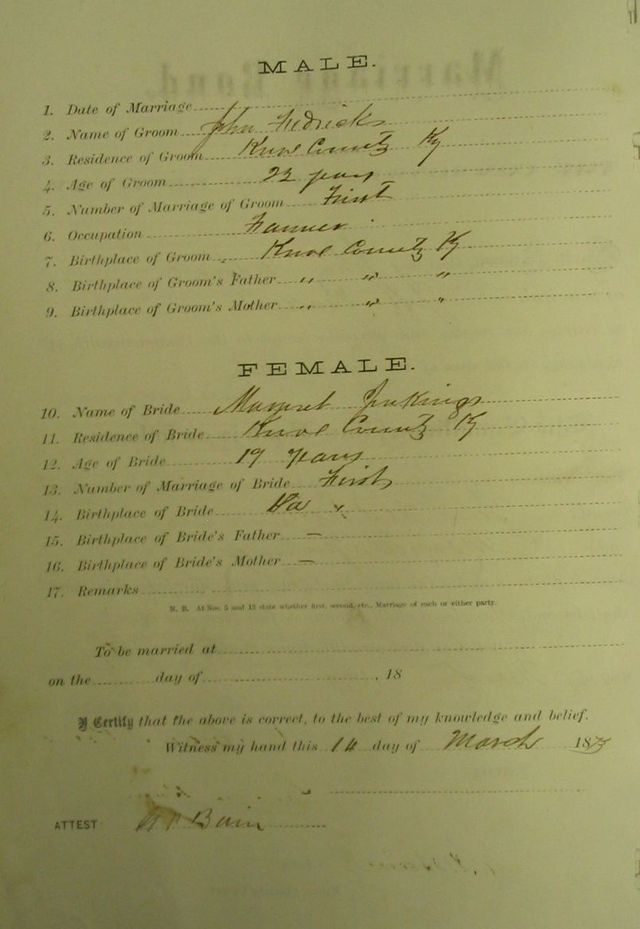 MALE.
1. Date of Marriage
2. Name of Groom John Fedricks
3. Residence of Groom Knox County Ky
4. Age of Groom 22 years
5. Number of Marriage of Groom First
6. Occupation Farmer
7. Birthplace of Groom Knox County Ky
8. Birthplace of Groom's Father " " "
9. Birthplace of Groom's Mother " " "
FEMALE.
10. Name of Bride Margret Jenkings
11. Residence of Bride Knox County Ky
12. Age of Bride 19 years
13. Number of Marriage of Bride First
14. Birthplace of Bride Va
15. Birthplace of Bride's Father —
16. Birthplace of Bride's Mother —
17. Remarks
N. B. At Nos. 5 and 13 state whether first, second, etc., Marriage of each or either party.
To be married at
on the day of , 18
I Certify that the above is correct, to the best of my knowledge and belief.
Witness my hand this day of March 18
ATTEST Bain